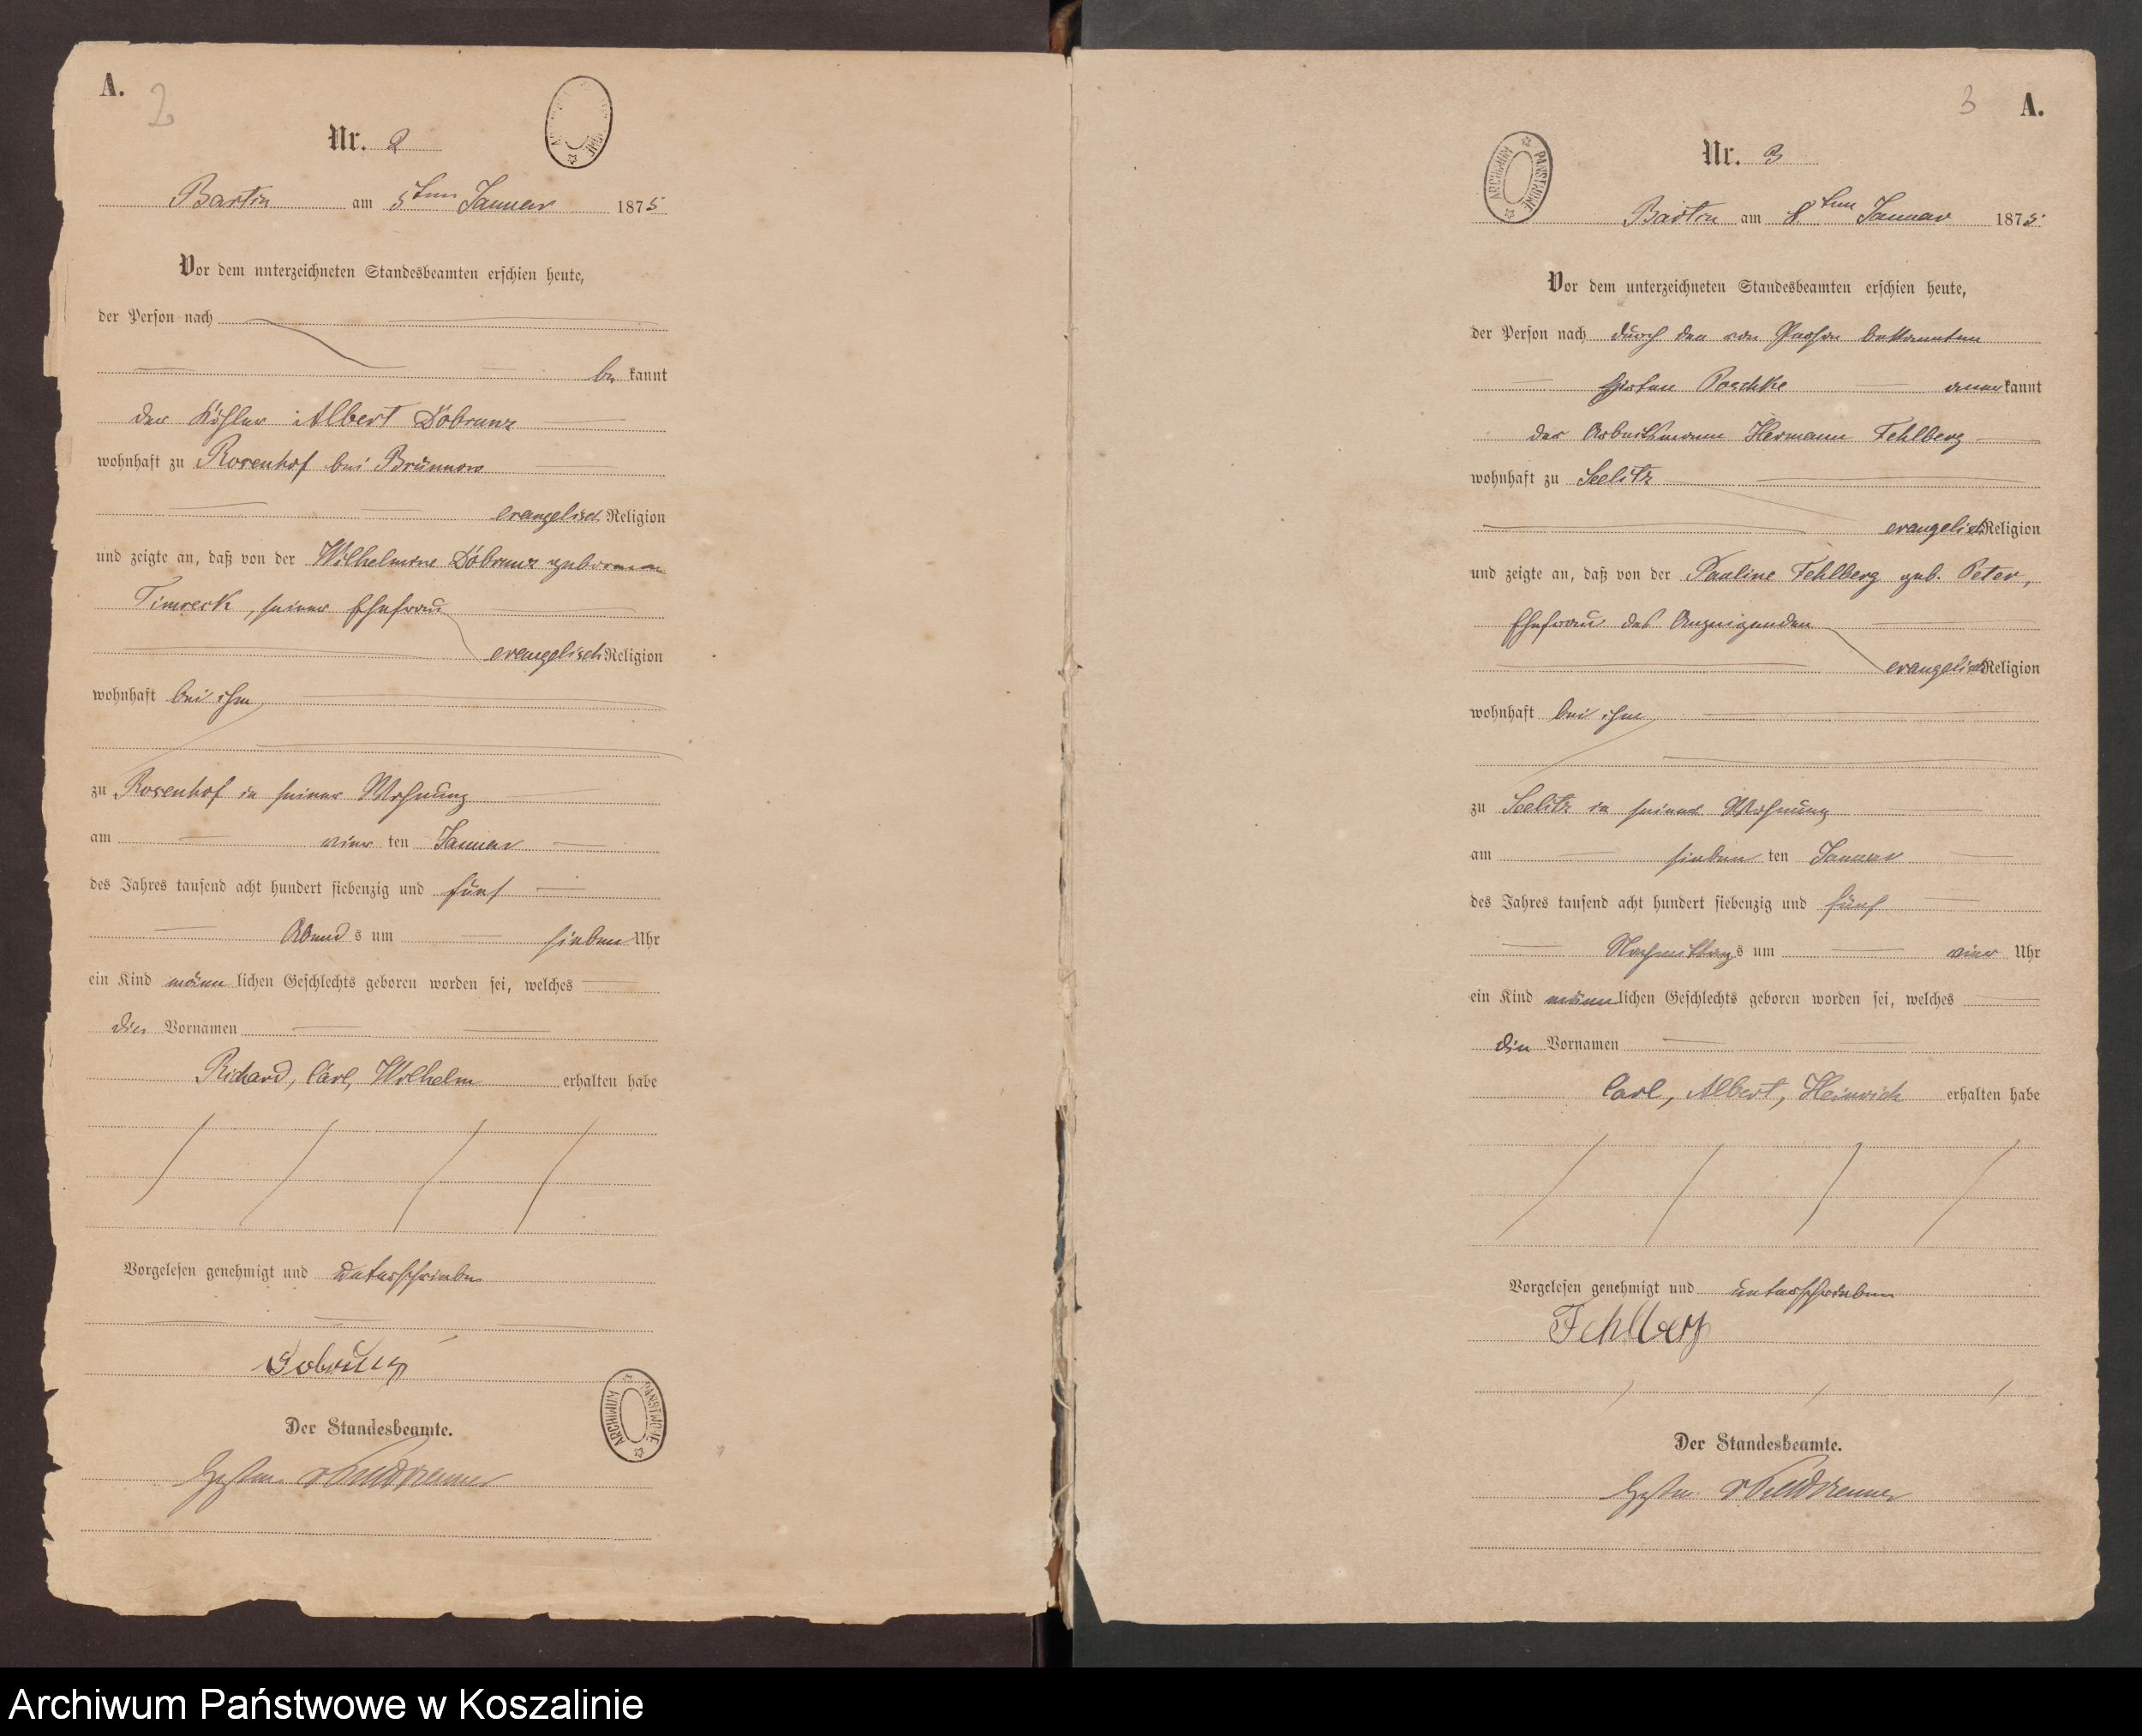 A.
2
Nr. 2
Bartin am 5ten Januar 1875
Vor dem unterzeichneten Standesbeamten erschien heute,
der Person nach
be kannt
der Käthner Albert Döbrunz
wohnhaft zu Rosenhof bei Brünnow
evangelisch Religion
und zeigte an, daß von der Wilhelmine Döbrunz geborenen
Timreck, seiner Ehefrau
evangelisch Religion
wohnhaft bei ihm
zu Rosenhof in seiner Wohnung
am vier ten Januar
des Jahres tausend acht hundert siebenzig und fünf
Abend s um sieben Uhr
ein Kind männ lichen Geschlechts geboren worden sei, welches
die Vornamen
Richard, Carl, Wilhelm erhalten habe
Vorgelesen genehmigt und unterschrieben
Döbrunz
Der Standesbeamte.
ARCHIWUM PAŃSTWOWE
3
A.
Nr. 3
ARCHIWUM PAŃSTWOWE
Bartin am 8ten Januar 1875
Vor dem unterzeichneten Standesbeamten erschien heute,
der Person nach durch den von Person bekannten
Hirten Paschke anerkannt
der Arbeitsmann Hermann Fehlberg
wohnhaft zu Seelitz
evangelisch Religion
und zeigte an, daß von der Pauline Fehlberg geb. Peter,
Ehefrau des Anzeigenden
evangelisch Religion
wohnhaft bei ihm
zu Seelitz in seiner Wohnung
am sieben ten Januar
des Jahres tausend acht hundert siebenzig und fünf
Nachmittags um vier Uhr
ein Kind männlichen Geschlechts geboren worden sei, welches
die Vornamen
Carl, Albert, Heinrich erhalten habe
Vorgelesen genehmigt und unterschrieben
Fehlberg
Der Standesbeamte.
Archiwum Państwowe w Koszalinie